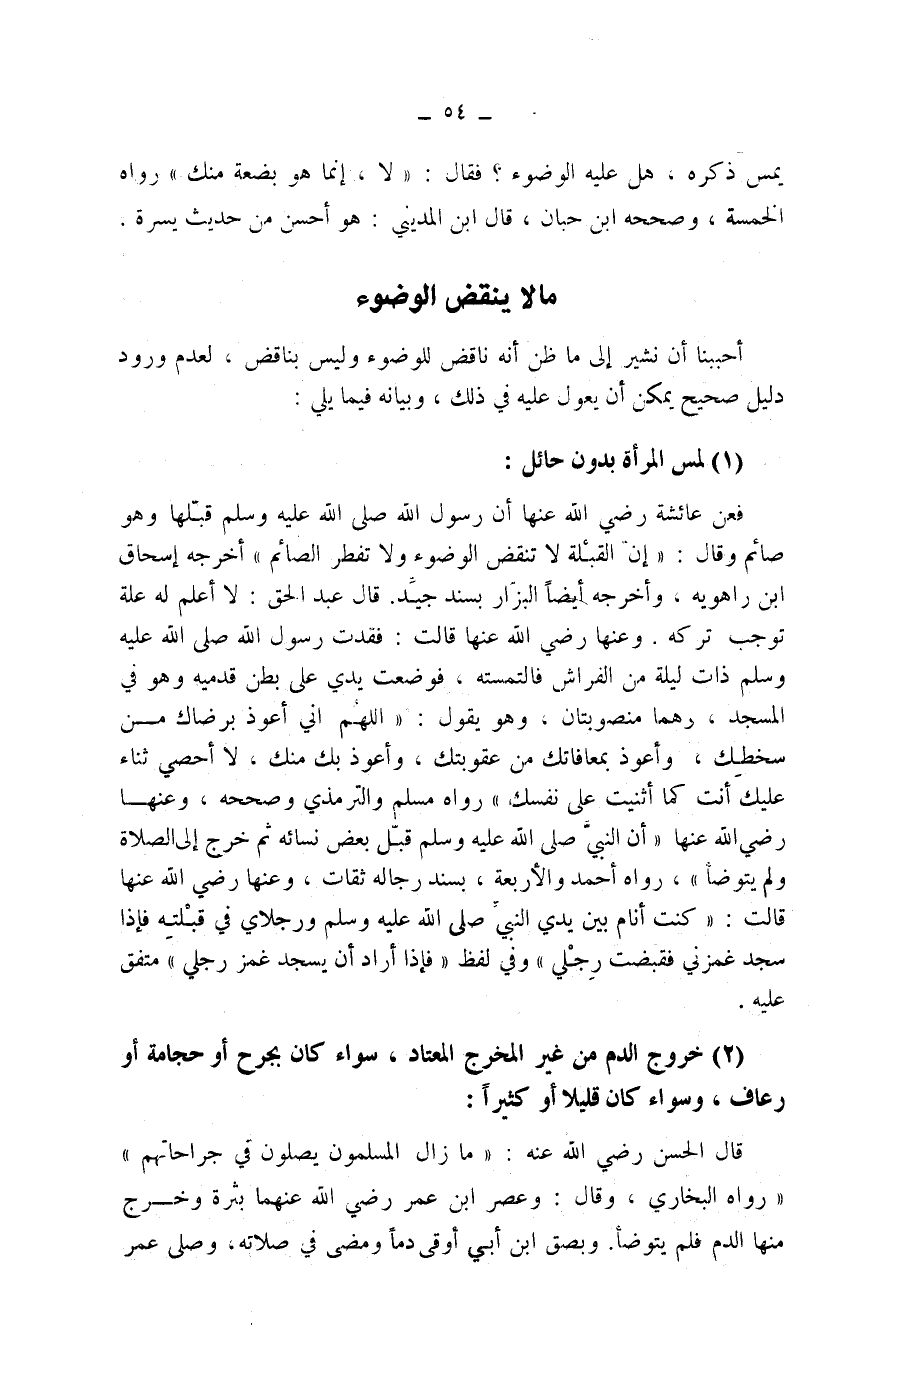 ـ ٥٤ ـ
يمس ذكره ، هل عليه الوضوء ؟ فقال : « لا ، إنما هو بضعة منك » رواه
الخمسة ، وصححه ابن حبان ، قال ابن المديني : هو أحسن من حديث يسرة .
مالا ينقض الوضوء
أحببنا أن نشير إلى ما ظن أنه ناقض للوضوء وليس بناقض ، لعدم ورود
دليل صحيح يمكن أن يعول عليه في ذلك ، وبيانه فيما يلي :
(١) لمس المرأة بدون حائل :
فعن عائشة رضي الله عنها أن رسول الله صلى الله عليه وسلم قبّلها وهو
صائم وقال : « إنّ القبْلة لا تنقض الوضوء ولا تفطر الصائم » أخرجه إسحاق
ابن راهويه ، وأخرجه أيضاً البزّار بسند جيّد. قال عبد الحق : لا أعلم له علة
توجب تركه . وعنها رضي الله عنها قالت : فقدت رسول الله صلى الله عليه
وسلم ذات ليلة من الفراش فالتمسته ، فوضعت يدي على بطن قدميه وهو في
المسجد ، رهما منصوبتان ، وهو يقول : « اللهُم اني أعوذ برضاك مـــن
سخطِك ، وأعوذ بمعافاتك من عقوبتك ، وأعوذ بك منك ، لا أحصي ثناء
عليك أنت كما أثنيت على نفسك » رواه مسلم والترمذي وصححه ، وعنهـــا
رضي الله عنها « أن النبيَّ صلى الله عليه وسلم قبّل بعض نسائه ثم خرج إلى الصلاة
ولم يتوضأ » ، رواه أحمد والأربعة ، بسند رجاله ثقات ، وعنها رضي الله عنها
قالت : « كنت أنام بين يدي النبيِّ صلى الله عليه وسلم ورجلاي في قبْلتـه فإذا
سجد غمزني فقبضت رِجْلي » وفي لفظ « فإذا أراد أن يسجد غمز رجلي » متفق
عليه .
(٢) خروج الدم من غير المخرج المعتاد ، سواء كان بجرح أو حجامة أو
رعاف ، وسواء كان قليلا أو كثيراً :
قال الحسن رضي الله عنه : « ما زال المسلمون يصلون في جراحاتهم »
« رواه البخاري ، وقال : وعصر ابن عمر رضي الله عنهما بثرة وخـــرج
منها الدم فلم يتوضأ. وبصق ابن أبـي أوقى دماً ومضى في صلاته، وصلى عمر